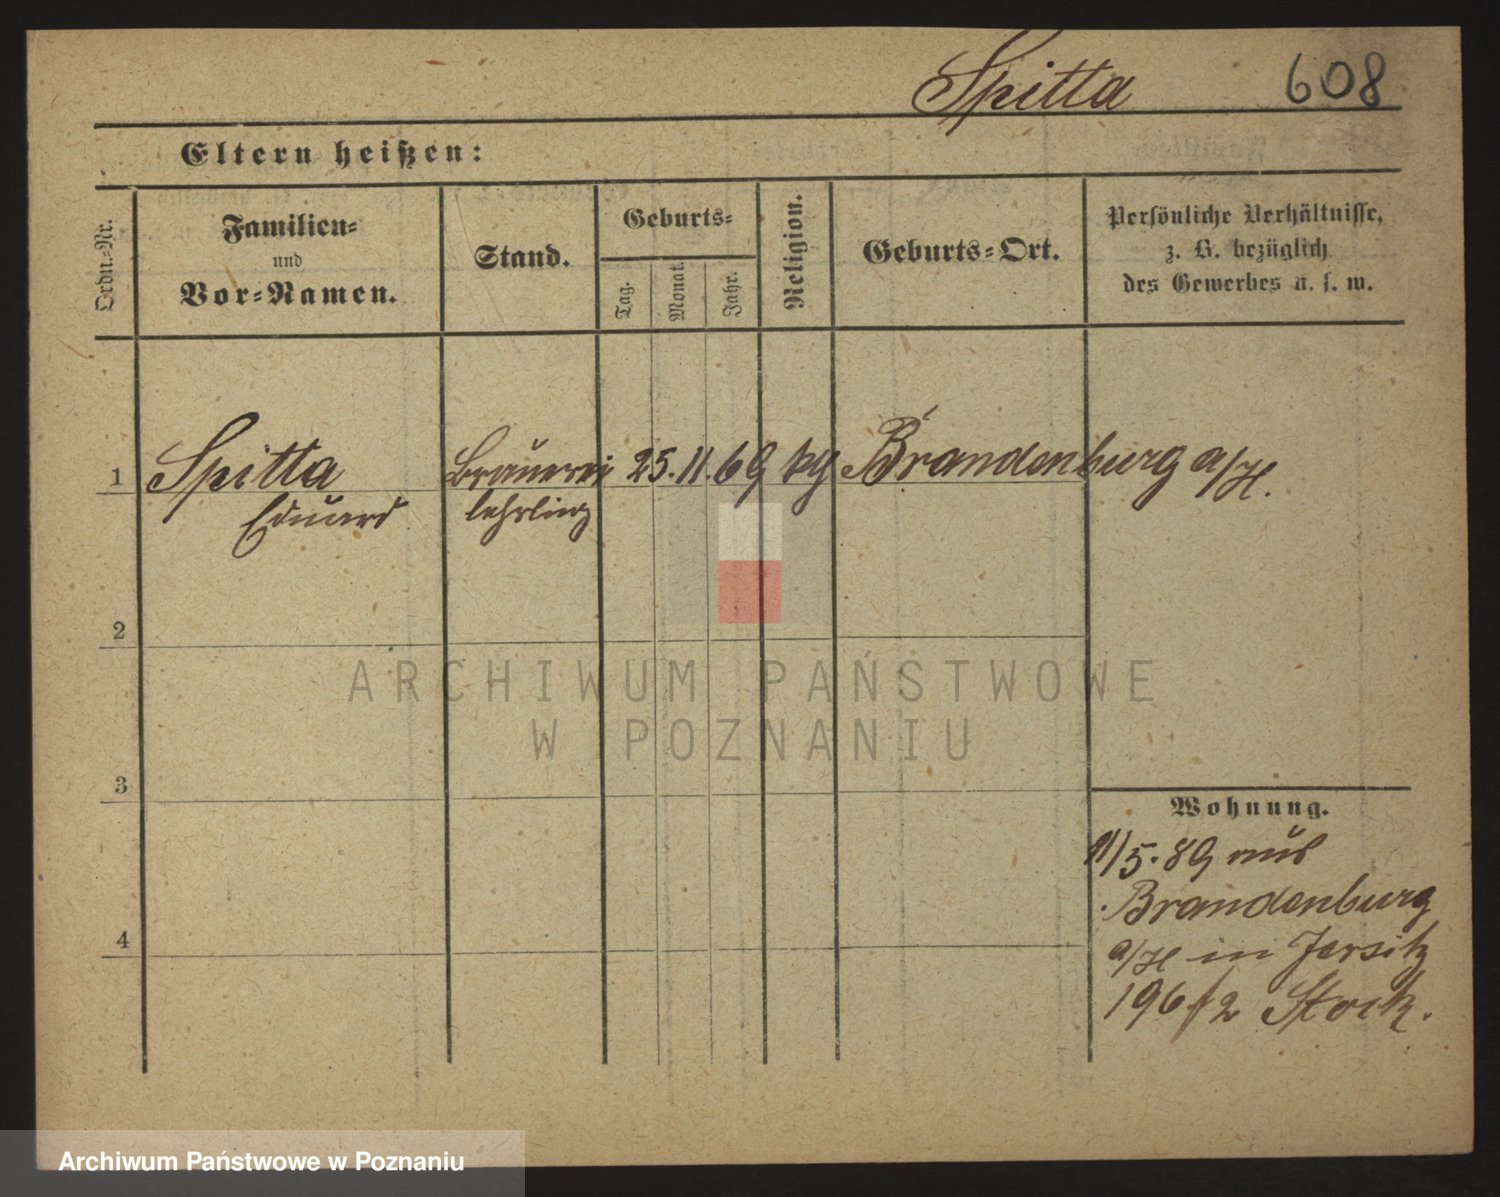 Spitta 608
Eltern heißen:
Ordn.-Nr.
Familien-
und
Vor-Namen.
Stand.
Geburts-
Tag.
Monat.
Jahr.
Religion.
Geburts-Ort.
Persönliche Verhältnisse,
z. B. bezüglich
des Gewerbes u. s. w.
1 Spitta Brauerei 25. 11. 69 kg Brandenburg a/H.
Eduard lehrling
2
3
4
Wohnung.
11/5. 89 aus
Brandenburg
a/H in Jersitz
196 f 2 Stock.
ARCHIWUM PAŃSTWOWE
W POZNANIU
Archiwum Państwowe w Poznaniu